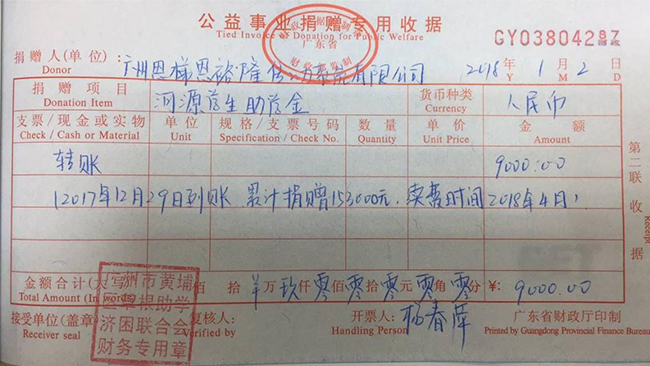 公益事业捐赠专用收据
Tied Invoice of Donation for Public Welfare
广东省
财政部监制
GY03804287
捐赠人(单位): 广州恩梯恩裕隆传动系统有限公司 2018 年 1 月 2 日
Donor Y M D
捐赠项目 河源蓝生助学金 货币种类 人民币
Donation Item Currency
支票/现金或实物 单位 规格/支票号码 数量 单价 金额
Check / Cash or Material Unit Specification / Check No. Quantity Unit Price Amount
转账 9000.00
(2017年12月29日到账 累计捐赠153000元, 续费时间2018年4月)
第二联 收据
Receipt
金额合计(大写) 佰 拾 万 玖仟 零佰 零拾 零元 零角 零分 ¥: 9000.00
Total Amount (In words)
接受单位(盖章) 复核人: 开票人: 杨春萍 广东省财政厅印制
Receiver seal Verifier: Handling Person: Printed by Guangdong Provincial Finance Bureau
广州市黄埔
区草根助学
济困联合会
财务专用章